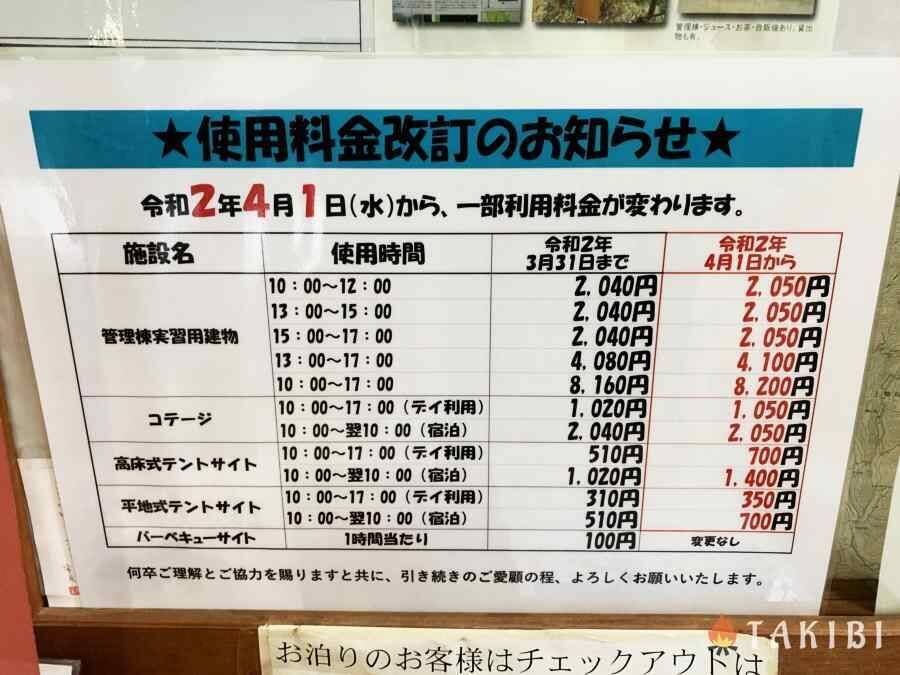 管理棟・ジュース・お茶・自販機あり。貸出
物も有。
★使用料金改訂のお知らせ★
令和2年4月1日(水)から、一部利用料金が変わります。
施設名 使用時間 令和2年3月31日まで 令和2年4月1日から
管理棟実習用建物
10:00～12:00 2,040円 2,050円
13:00～15:00 2,040円 2,050円
15:00～17:00 2,040円 2,050円
13:00～17:00 4,080円 4,100円
10:00～17:00 8,160円 8,200円
コテージ
10:00～17:00(デイ利用) 1,020円 1,050円
10:00～翌10:00(宿泊) 2,040円 2,050円
高床式テントサイト
10:00～17:00(デイ利用) 510円 700円
10:00～翌10:00(宿泊) 1,020円 1,400円
平地式テントサイト
10:00～17:00(デイ利用) 310円 350円
10:00～翌10:00(宿泊) 510円 700円
バーベキューサイト 1時間当たり 100円 変更なし
何卒ご理解とご協力を賜りますと共に、引き続きのご愛顧の程、よろしくお願いいたします。
TAKIBI
お泊りのお客様はチェックアウトは